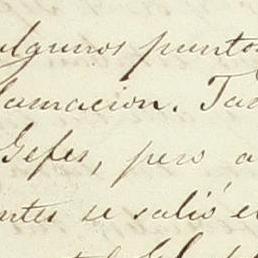 algunos puntos
lamacion. Tad
Gefes, pero a
ntes se salió e